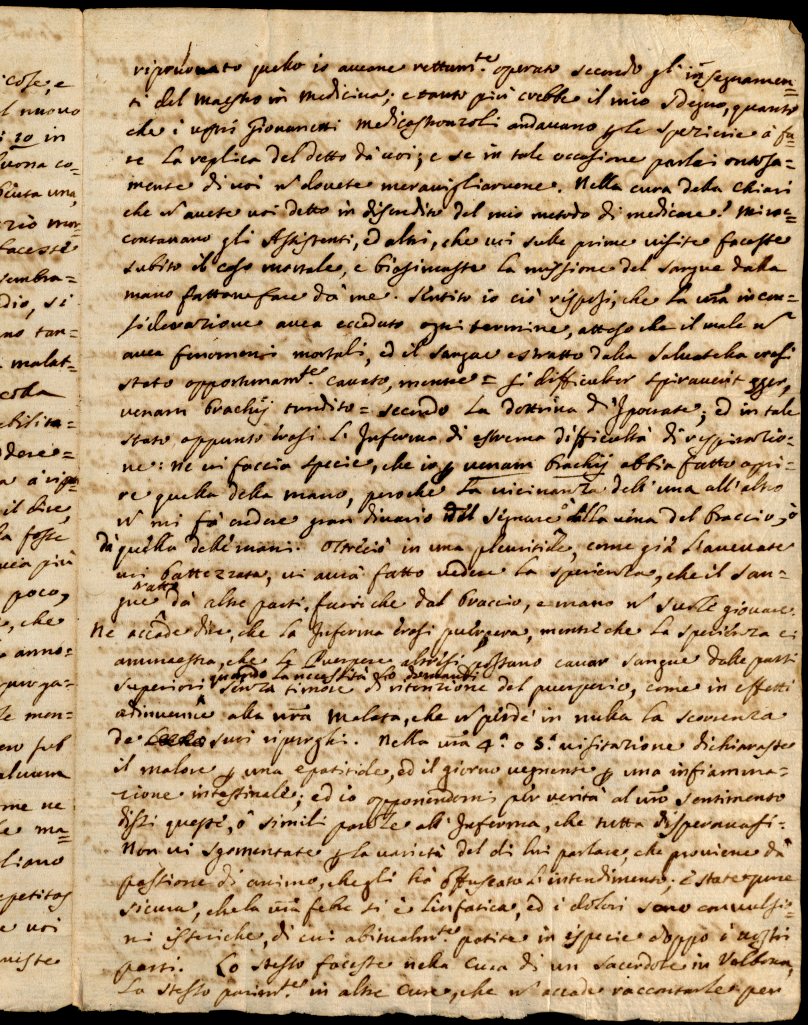 cose, e
l nuovo
i 20 in
buona co=
una
facesti
sembra=
dio, si
no tan=
malat=
coda
ebilita=
dere=
il dire,
la fosse
vea più
poco,
e, che
anno=
purga=
le mon=
alcuna
me ne
le ma=
gliano
e voi
riprovato quello io aveane rettamte. operato secondo gl'insegnamen=
ti del maestro in medicina; e tanto più crebbe il mio sdegno, quanto
che i vostri Giovanetti medicastronzoli andavano p le spezierie à fa=
re la replica del detto dà voi; e se in tale occasione parlai ontosa=
mente di voi nō dovete meravigliarvene. Nella cura della Chiari
che nō avete voi detto in discredito del mio metodo di medicare? Mi rac=
contavano gli Assistenti, ed altri, che voi sulle prime visite faceste
subito il caso mortale, e biasimaste la missione del sangue dalla
mano fattane fare dà me. Sentito io ciò risposi, che la vrā incon=
siderazione avea ecceduto ogni termine, atteso che il male nō
avea fenomeni mortali, ed il sangue estratto dalla salvatella erasi
stato opportunamte. cavato, mentre = si difficulter spiraverit eger,
venam brachij tundito = secondo la dottrina d'Ipocrate; ed in tale
stato appunto erasi l'Inferma di estrema difficoltà di respirazio=
ne: ne vi faccia specie, che io p venam brachij abbia fatto apri=
re quella della mano, perche la vicinanza dell'una all'altra
nō mi fà credere gran divario dal segnare ò dalla vena del braccio, ò
dà quella delle mani. Oltreciò in una pleuritide, come già l'avevate
voi battezzata, vi avrà fatto vedere la sperienza, che il san=
gue tratto dà altre parti, fuori che dal braccio, e mano nō suole giovare.
Ne accade dire, che la Inferma erasi puerpera, mentre che la sperienza ci
ammaestra, che le Puerpere altresì possano cavar sangue dalle parti
superiori quando la necessità lo domandi senza timore di ritenzione del puerperio, come in effetti
adivenne alla vrā malata, che nō perdè in nulla la scorrenza
de suoi ripurghi. Nella vrā 4.a o 5.a visitazione dichiaraste
il malore p una epatitide, ed il giorno vegnente p una infiamma=
zione intestinale; ed io opponendomi per verità al vrō sentimento
dissi queste, ò simili parole all'Inferma, che tutta disperavasi.
Non vi sgomentate p la varietà del di lui parlare, che proviene dà
passione di animo, che gli hà offuscato l'intendimento; e state pure
sicura, che la vrā febre si è linfatica, ed i dolori sono convulsi=
vi isteriche, di cui abitualmte. patite in ispecie doppo i vostri
parti. Lo stesso faceste nella cura di un sacerdote in Valbona,
lo stesso parimte. in altre cure, che nō accade raccontarle per